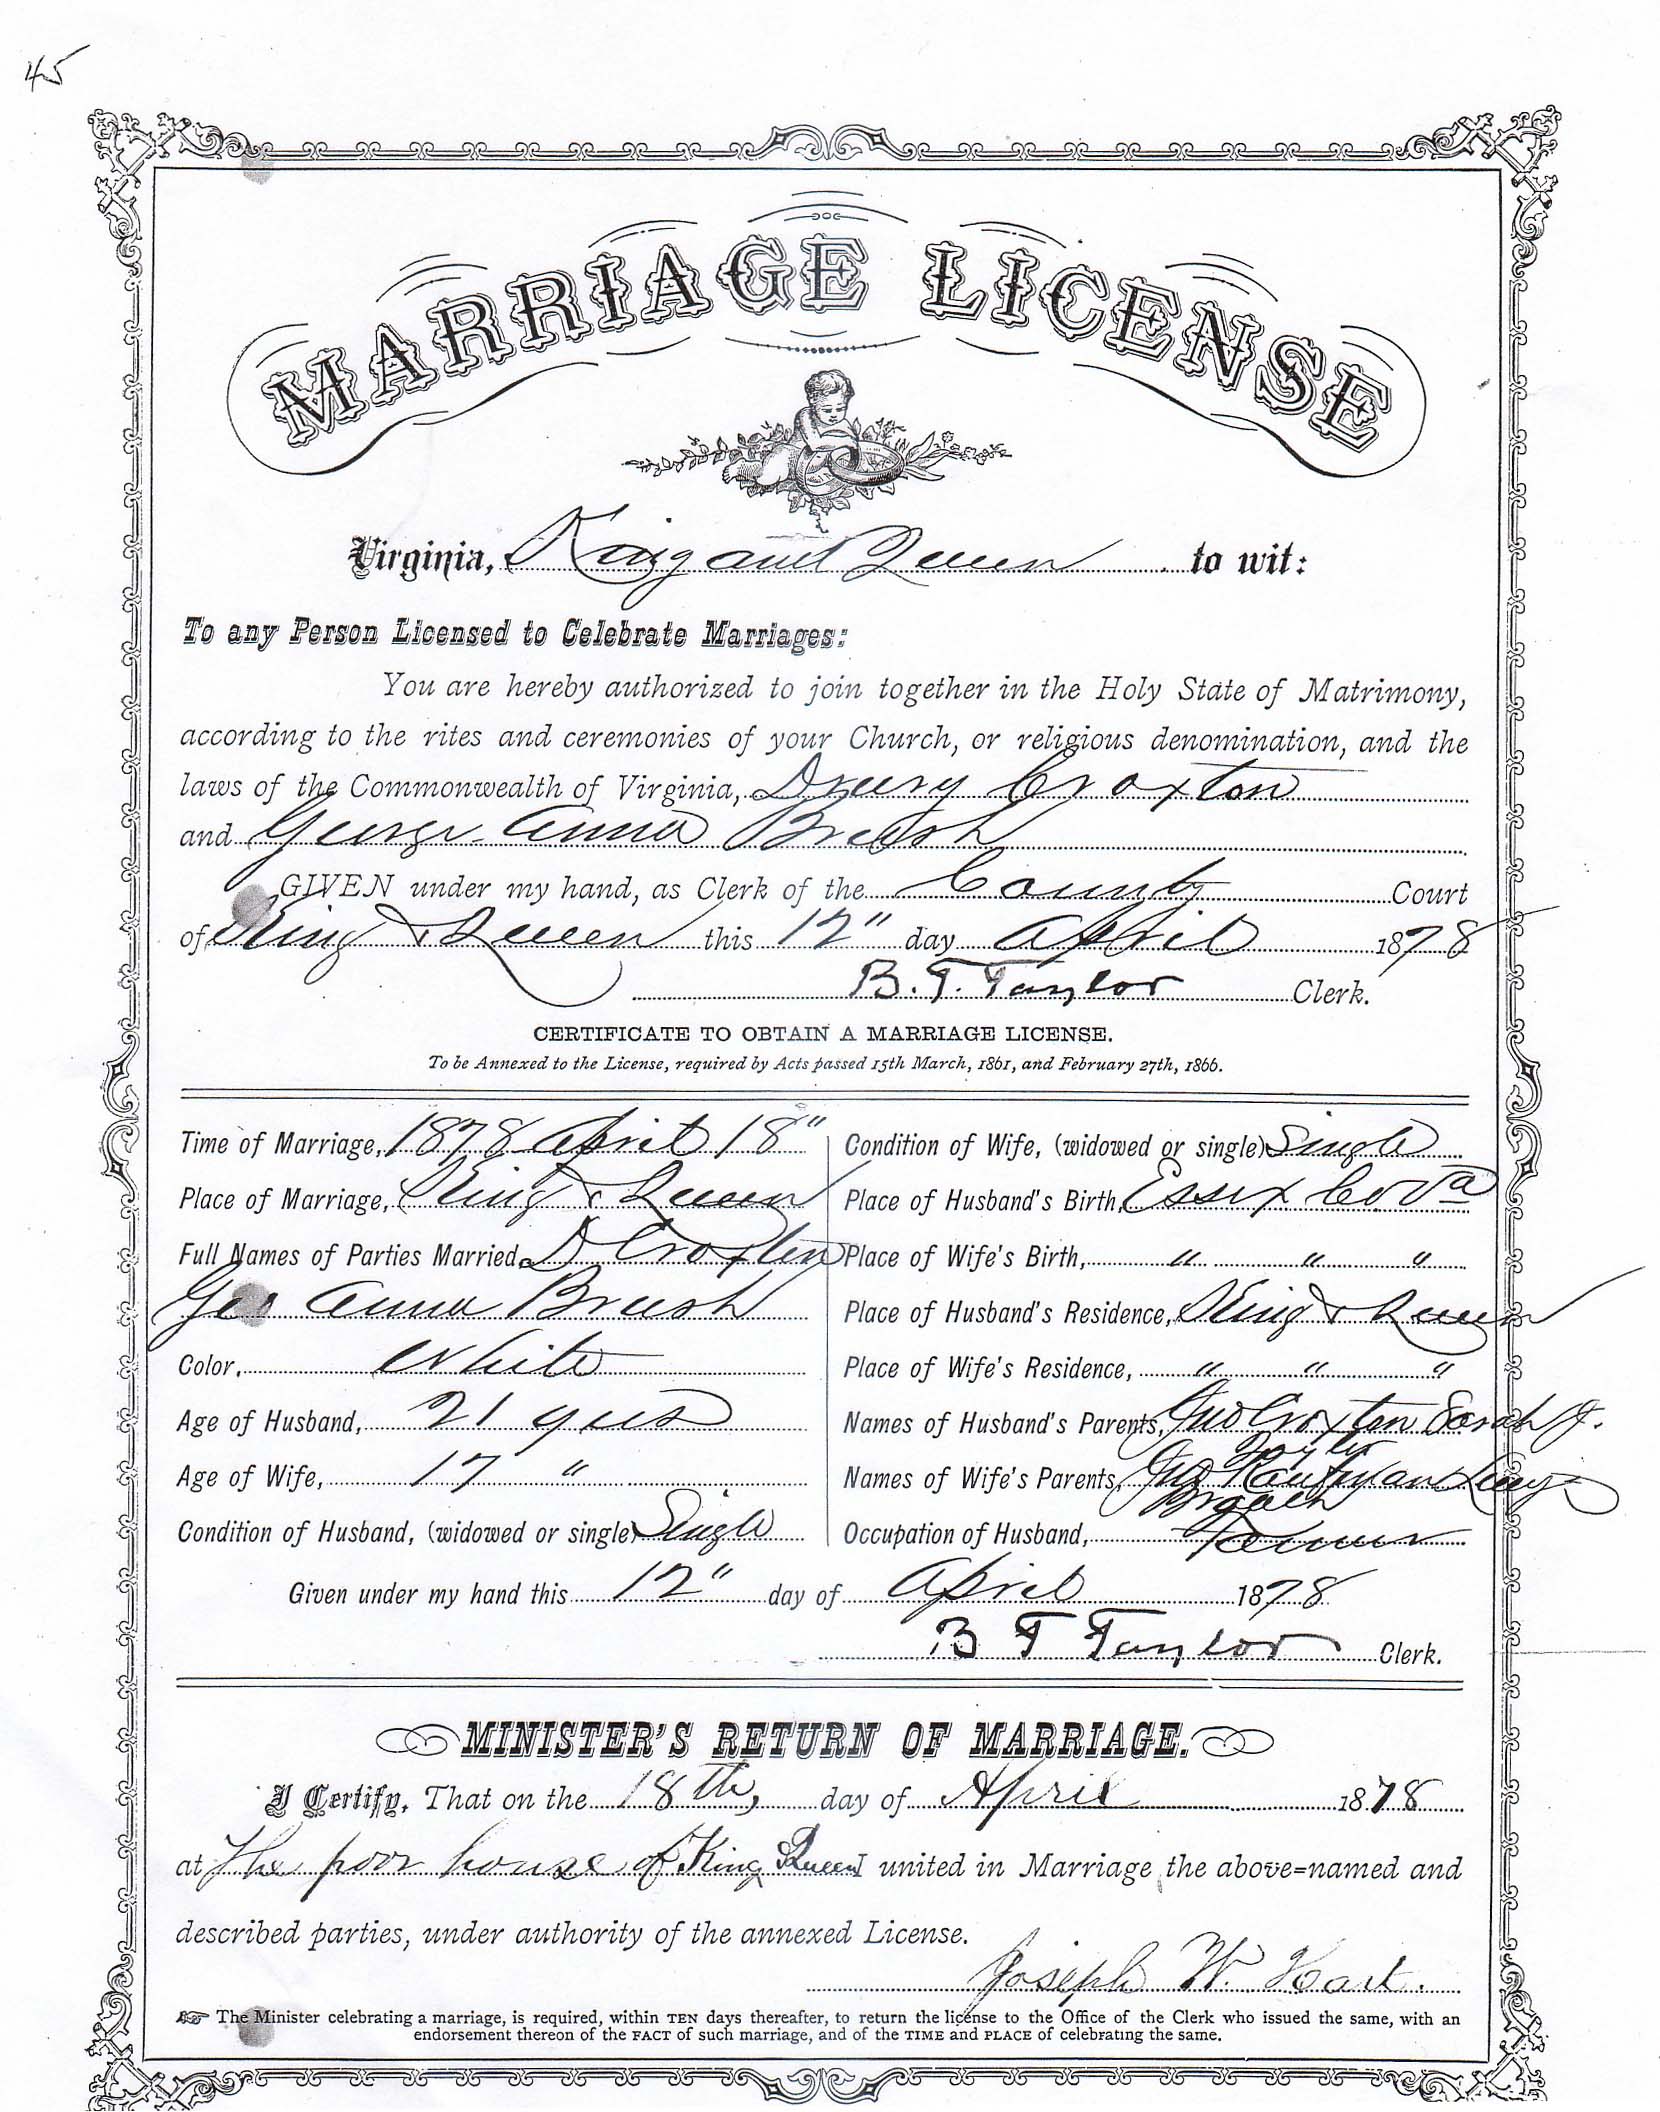 45
MARRIAGE LICENSE
Virginia, King and Queen to wit:
To any Person Licensed to Celebrate Marriages:
You are hereby authorized to join together in the Holy State of Matrimony,
according to the rites and ceremonies of your Church, or religious denomination, and the
laws of the Commonwealth of Virginia, Drury Croxton
and George Anna Brush
GIVEN under my hand, as Clerk of the County Court
of King & Queen this 12" day April 1878
B. T. Taylor Clerk.
CERTIFICATE TO OBTAIN A MARRIAGE LICENSE.
To be Annexed to the License, required by Acts passed 15th March, 1861, and February 27th, 1866.
Time of Marriage, 1878 April 18"
Place of Marriage, King & Queen
Full Names of Parties Married, D Croxton
Geo Anna Brush
Color, White
Age of Husband, 21 yrs
Age of Wife, 17 "
Condition of Husband, (widowed or single) Single
Condition of Wife, (widowed or single) Single
Place of Husband's Birth, Essex Co. Va
Place of Wife's Birth, " " "
Place of Husband's Residence, King & Queen
Place of Wife's Residence, " " "
Names of Husband's Parents, Jno Croxton Sarah J.
Names of Wife's Parents, Kaufman Lucy
Broach
Occupation of Husband, Farmer
Given under my hand this 12" day of April 1878
B T Taylor Clerk.
MINISTER'S RETURN OF MARRIAGE.
I Certify, That on the 18th, day of April 1878
at The poor house of King Queen I united in Marriage the above-named and
described parties, under authority of the annexed License.
Joseph W. Hart.
The Minister celebrating a marriage, is required, within TEN days thereafter, to return the license to the Office of the Clerk who issued the same, with an
endorsement thereon of the FACT of such marriage, and of the TIME and PLACE of celebrating the same.